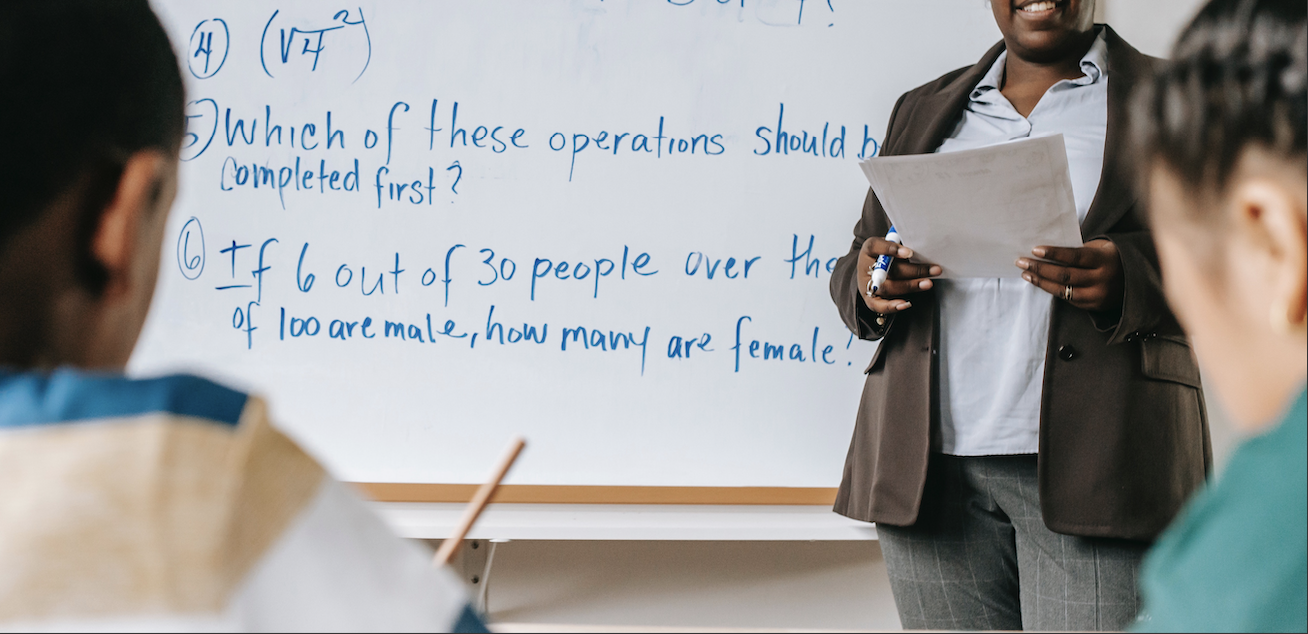 ④ (√4²)
⑤ Which of these operations should b
completed first?
⑥ If 6 out of 30 people over the
of 100 are male, how many are female?